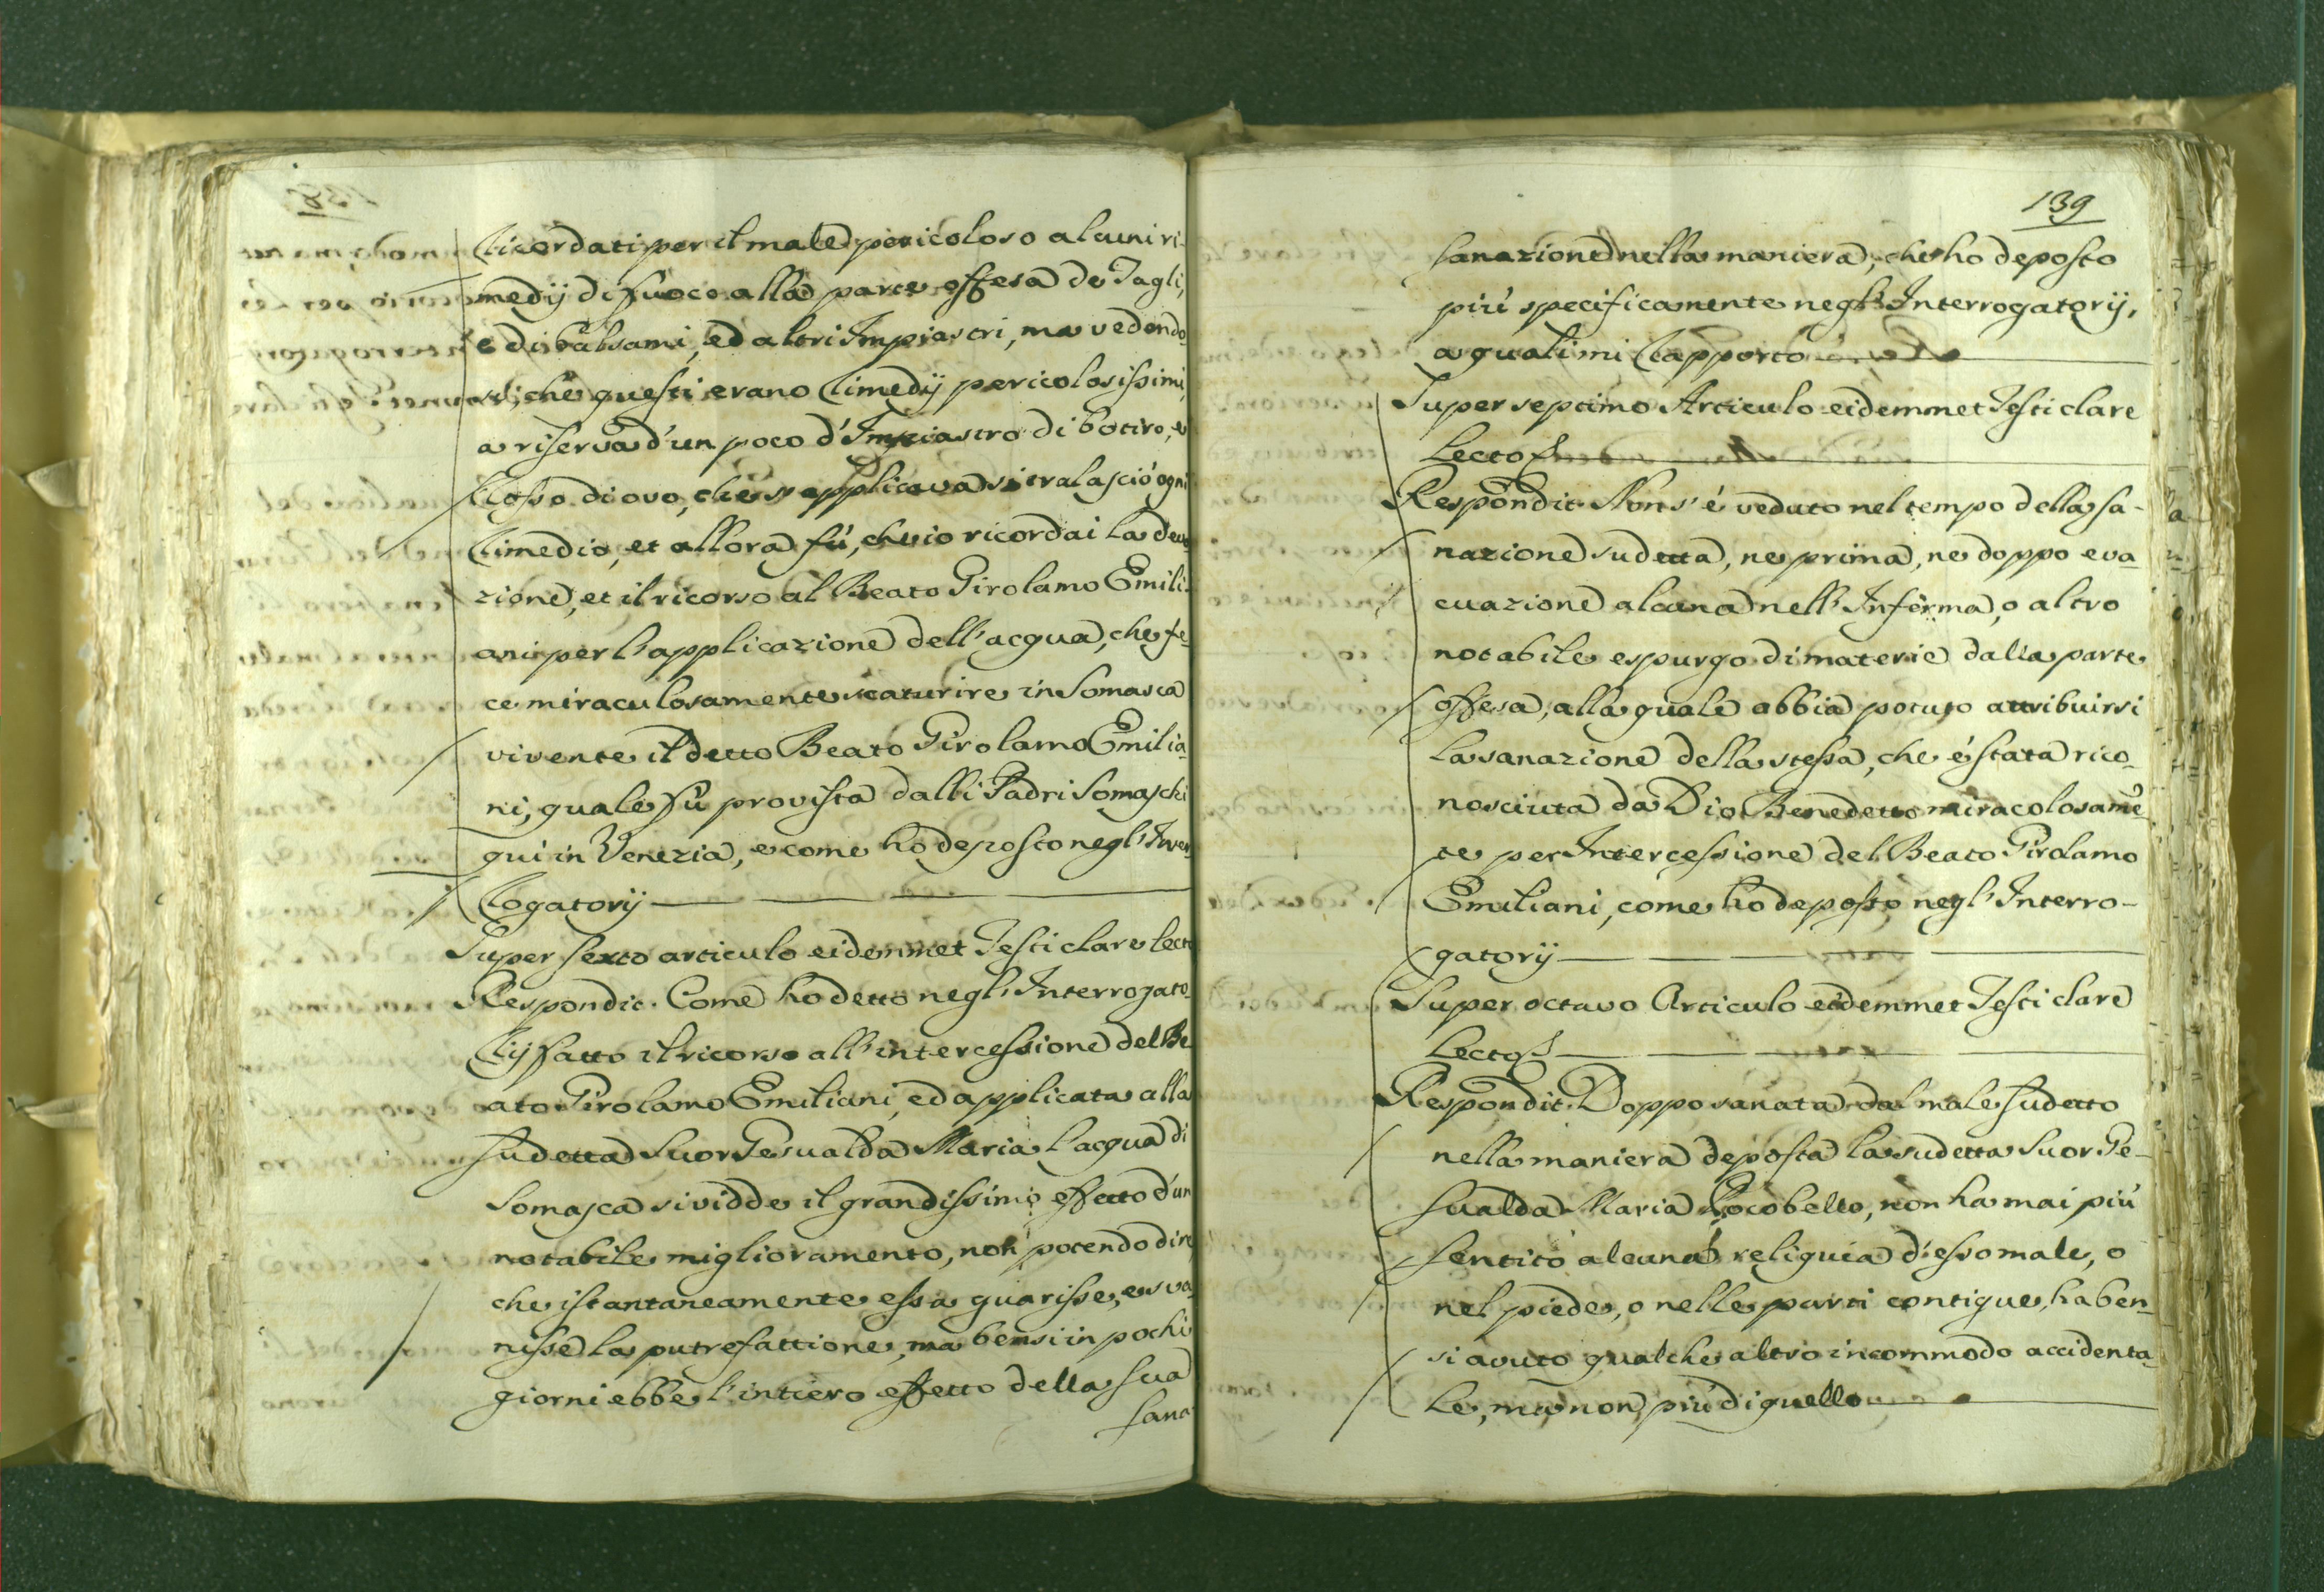 Ricordati per il male pericoloso alcuni ri-
medij di fuoco alla parte offesa de Tagli,
e di balsami, ed altri Impiastri, ma vedendo
si, che questi erano Rimedij pericolosissimi,
a riserva d'un poco d'Impiastro di botiro, e
Rosso di ovo, che si applicava si tralasciò ogni
Rimedio, et allora fù, che io ricordai la devo
zione, et il ricorso al Beato Girolamo Emili-
ani per l'applicazione dell'acqua, che fe-
ce miraculosamente scaturire in Somasca
vivente il detto Beato Girolamo Emilia-
ni, quale fù provista dalli Padri Somaschi
qui in Venezia, e come ho deposto negl'Inter
Rogatorij
Super sexto articulo eidemmet Testi clare lecto
Respondit. Come ho detto negl'Interrogato-
Rij fatto il ricorso all'intercessione del Be
ato Girolamo Emiliani, ed applicata alla
sudetta Suor Gesualda Maria l'acqua di
Somasca si vidde il grandissimo effetto d'un
notabile miglioramento, non potendo dire
che istantaneamente essa guarisse, e sva
nisse la putrefattione, ma bensi in pochi
giorni ebbe l'intiero effetto della sua
sana
139
sanazione nella maniera, che ho deposto
più specificamente negl'Interrogatorij,
a quali mi Rapporto
Super septimo Articulo eidemmet Testi clare
Lecto
Respondit. Non s'é veduto nel tempo della sa-
nazione sudetta, ne prima, ne doppo eva
cuazione alcuna nell'Inferma, o altro
notabile espurgo di materie dalla parte
offesa, alla quale abbia potuto attribuirsi
la sanazione della stessa, che é stata rico-
nosciuta da Dio Benedetto miracolosamẽ-
te per Intercessione del Beato Girolamo
Emiliani, come ho deposto negl'Interro-
gatorij
Super octavo Articulo eidemmet Testi clare
Lecto
Respondit. Doppo sanata dal male sudetto
nella maniera deposta la sudetta Suor Ge-
sualda Maria Pocobello, non ha mai più
sentito alcuna reliquia d'esso male, o
nel piede, o nelle parti contigue, ha ben-
si avuto qualche altro incommodo accidenta-
le, ma non più di quello